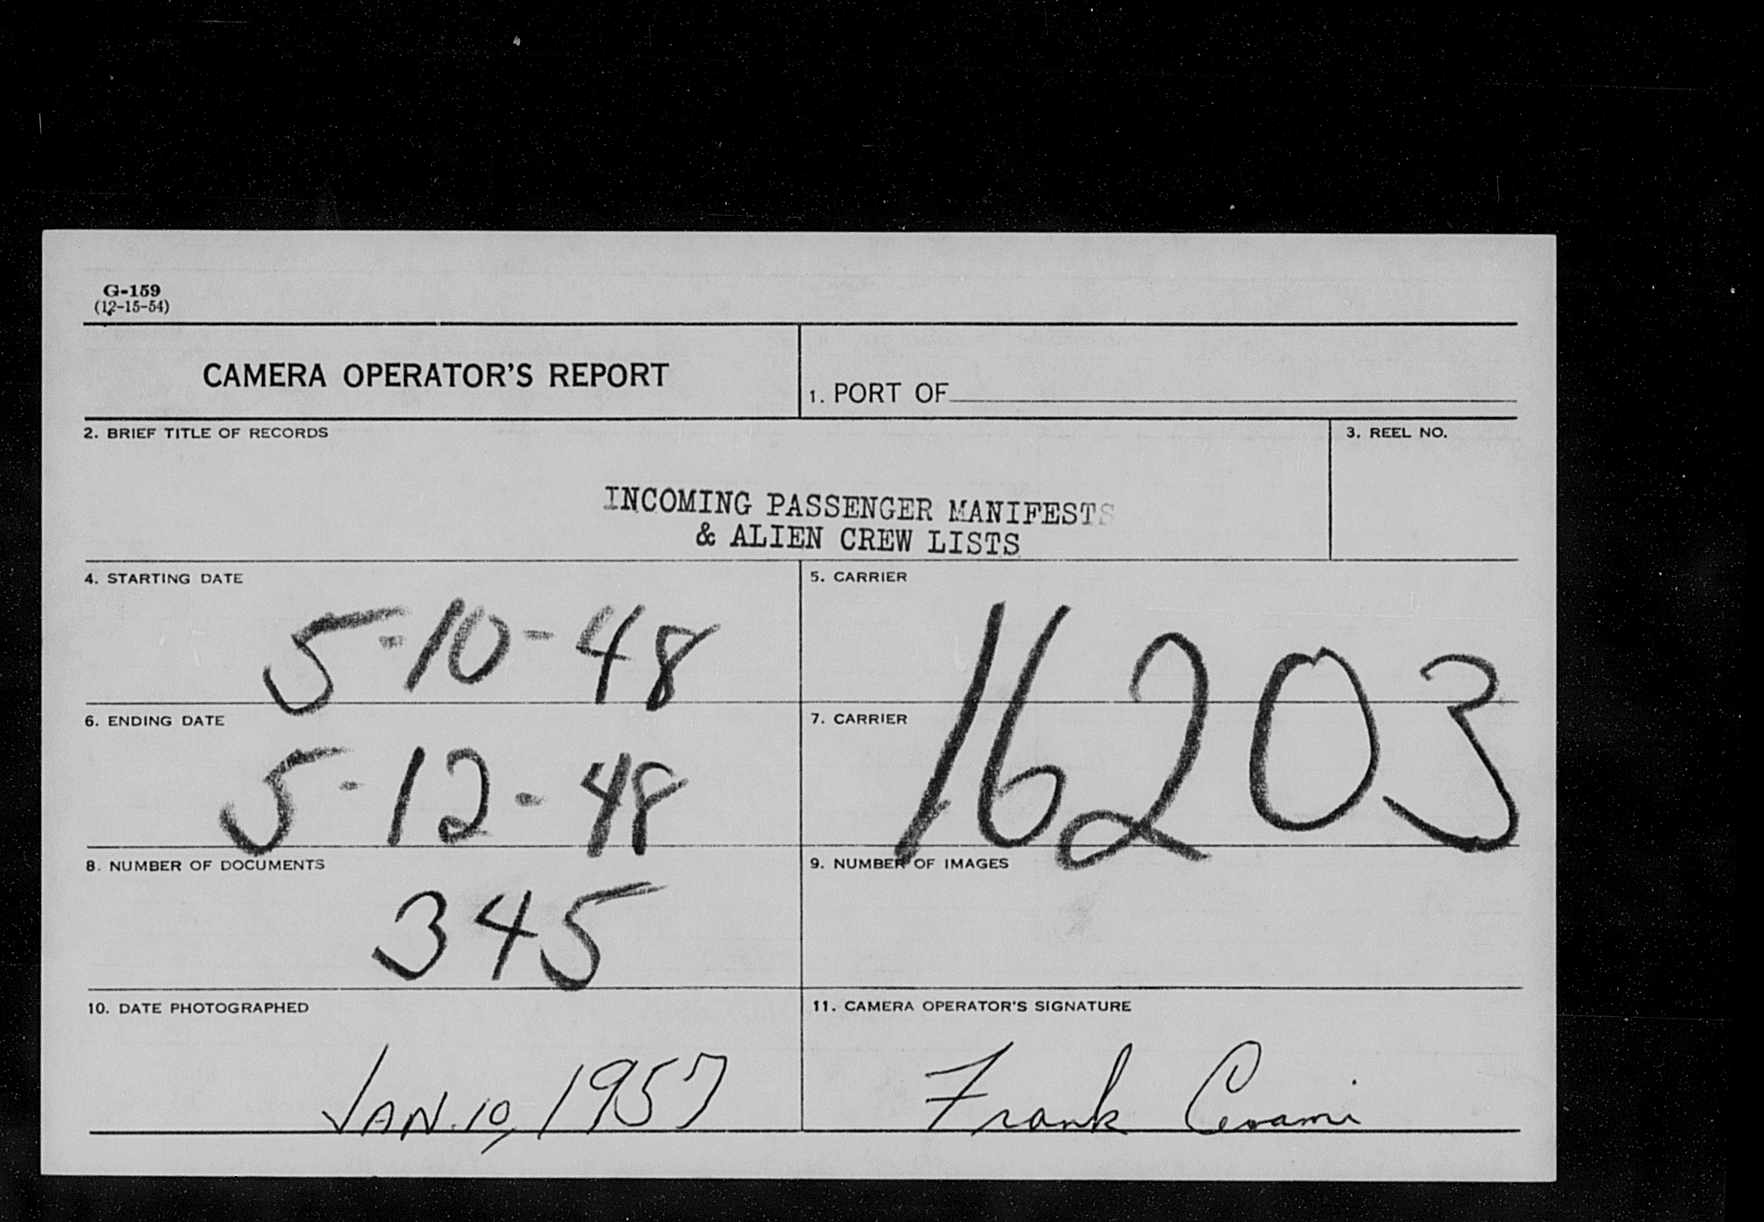 G-159
(12-15-54)
CAMERA OPERATOR'S REPORT
1. PORT OF
2. BRIEF TITLE OF RECORDS
3. REEL NO.
INCOMING PASSENGER MANIFESTS
& ALIEN CREW LISTS
4. STARTING DATE
5-10-48
5. CARRIER
16203
6. ENDING DATE
5-12-48
7. CARRIER
8. NUMBER OF DOCUMENTS
345
9. NUMBER OF IMAGES
10. DATE PHOTOGRAPHED
JAN. 10, 1957
11. CAMERA OPERATOR'S SIGNATURE
Frank